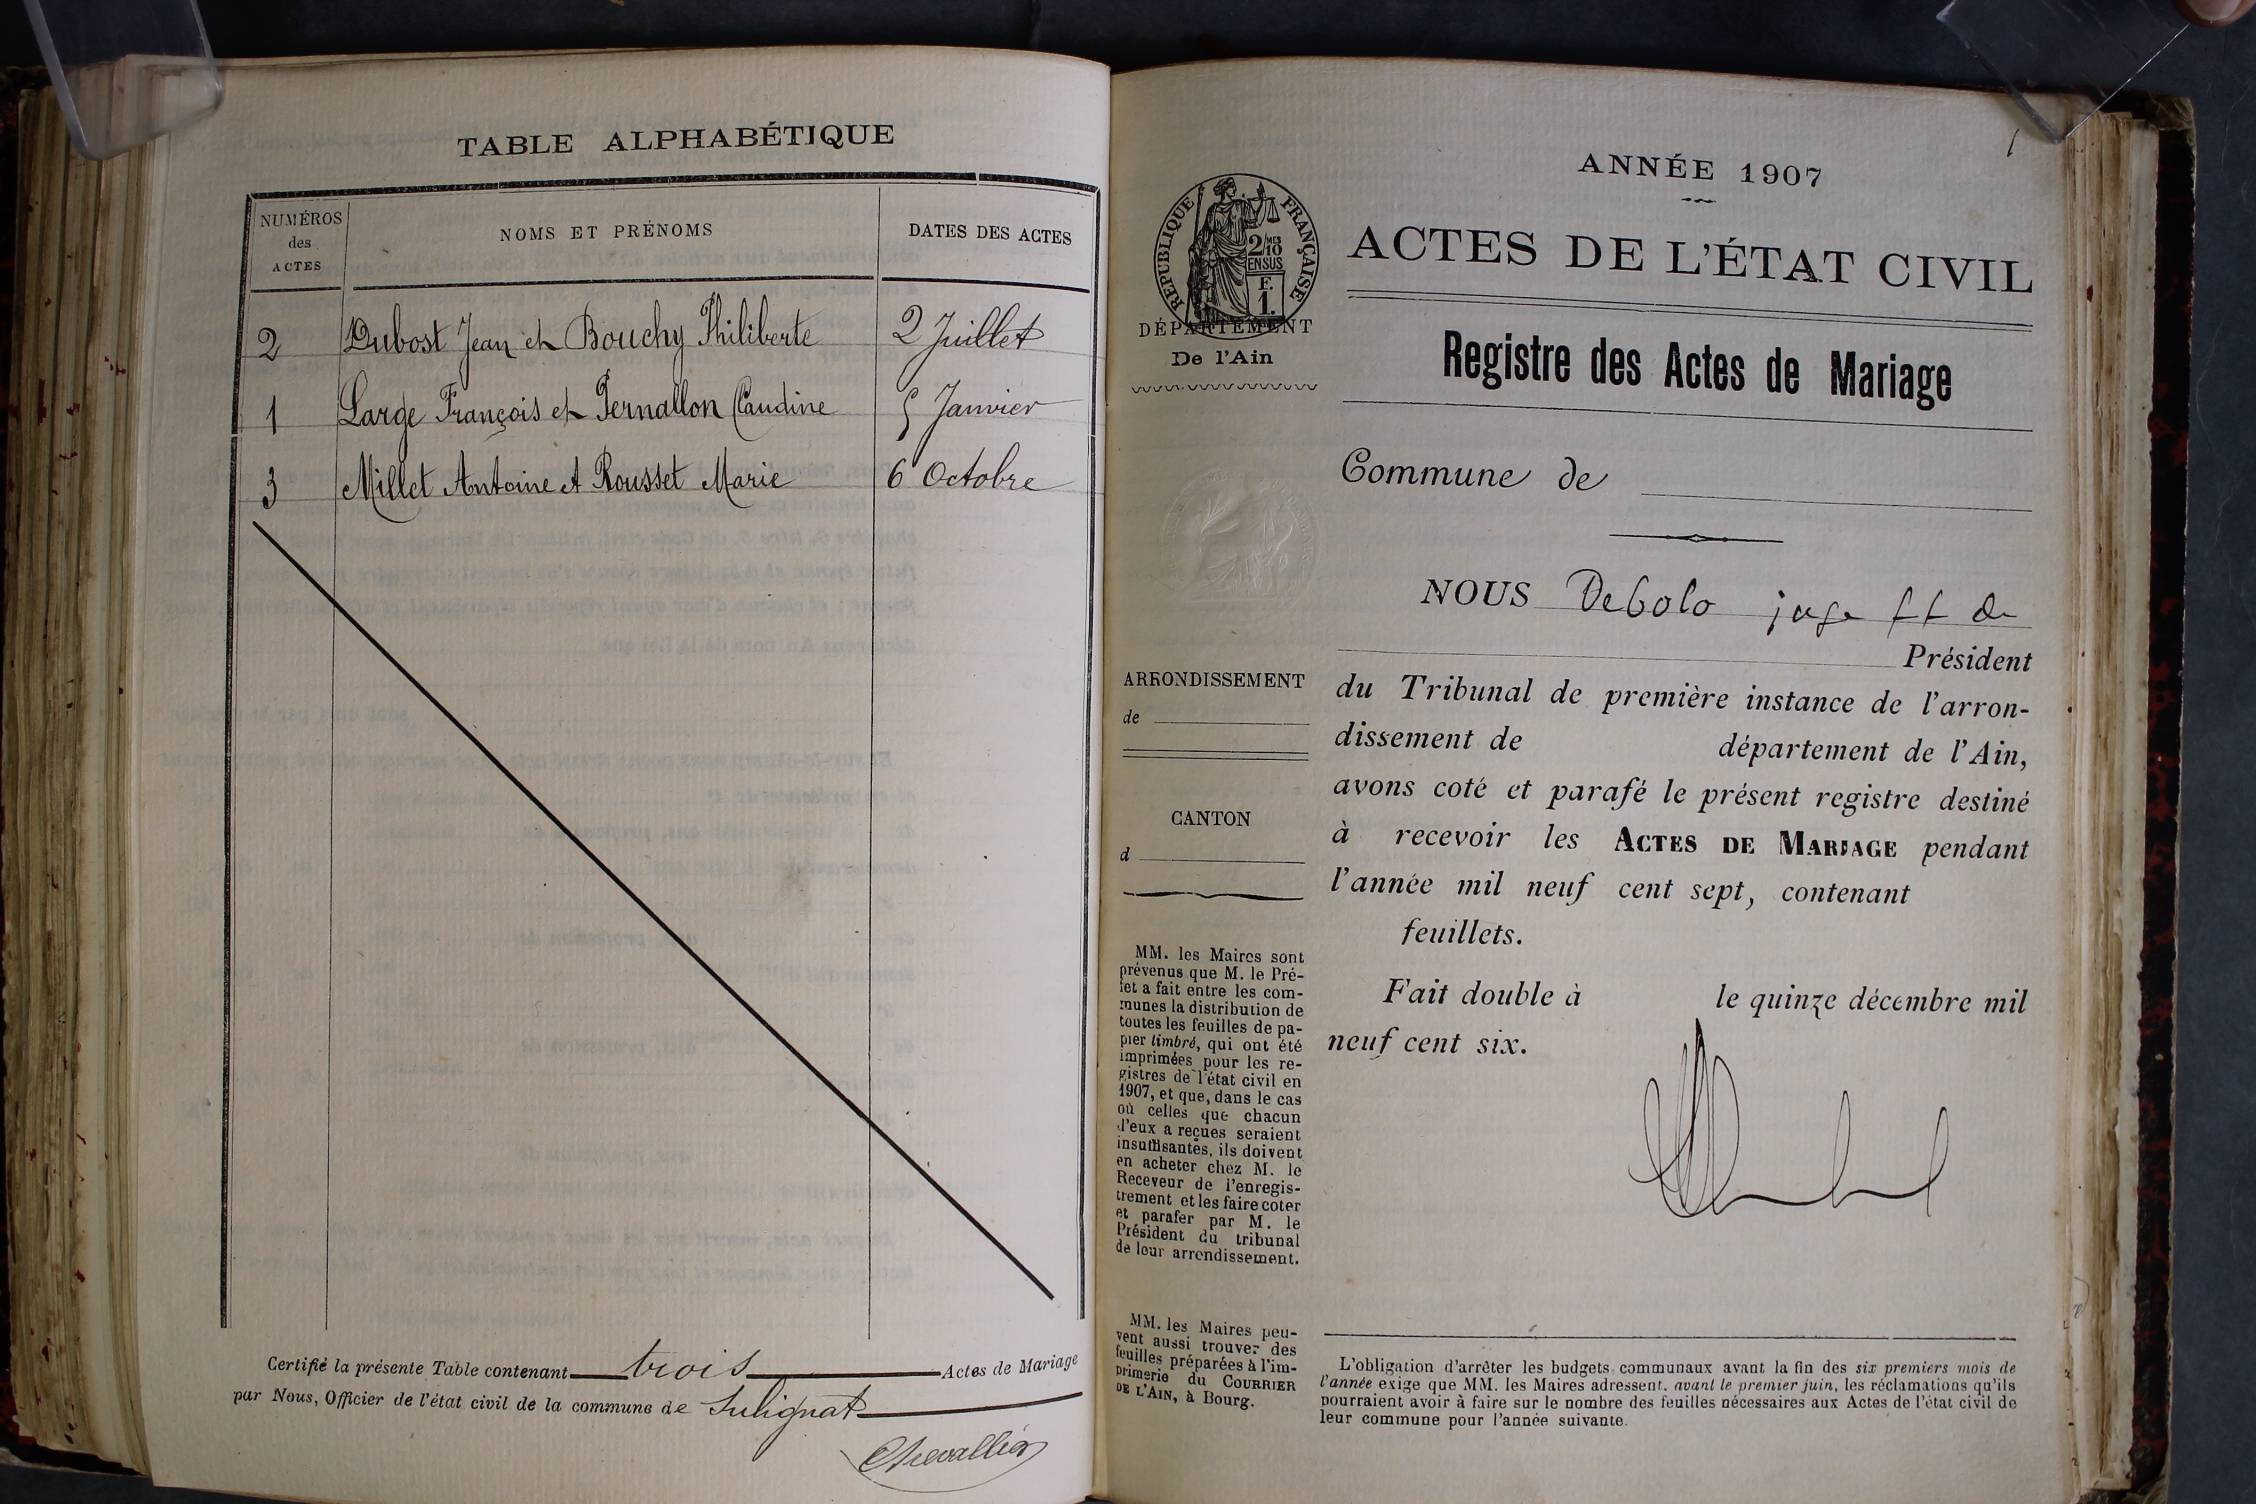 TABLE ALPHABÉTIQUE
NUMÉROS
des
ACTES
NOMS ET PRÉNOMS
DATES DES ACTES
2 Dubost Jean et Bouchy Philiberte 2 Juillet
1 Large François et Pernallon Caudine 5 Janvier
3 Millet Antoine et Rousset Marie 6 Octobre
Certifié la présente Table contenant trois Actes de Mariage
par Nous, Officier de l'état civil de la commune de Sulignat
Chevallier
1
ANNÉE 1907
RÉPUBLIQUE FRANÇAISE
2/MES
10
EN SUS
F.
1.
DÉPARTEMENT
De l'Ain
ACTES DE L'ÉTAT CIVIL
Registre des Actes de Mariage
Commune de
NOUS Debolo juge ff de
Président
du Tribunal de première instance de l'arron-
dissement de département de l'Ain,
avons coté et parafé le présent registre destiné
à recevoir les ACTES DE MARIAGE pendant
l'année mil neuf cent sept, contenant
feuillets.
Fait double à le quinze décembre mil
neuf cent six.
ARRONDISSEMENT
de
CANTON
d
MM. les Maires sont
prévenus que M. le Pré-
fet a fait entre les com-
munes la distribution de
toutes les feuilles de pa-
pier timbré, qui ont été
imprimées pour les re-
gistres de l'état civil en
1907, et que, dans le cas
où celles que chacun
d'eux a reçues seraient
insuffisantes, ils doivent
en acheter chez M. le
Receveur de l'enregis-
trement et les faire coter
et parafer par M. le
Président du tribunal
de leur arrondissement.
MM. les Maires peu-
vent aussi trouver des
feuilles préparées à l'im-
primerie du COURRIER
DE L'AIN, à Bourg.
L'obligation d'arrêter les budgets communaux avant la fin des six premiers mois de
l'année exige que MM. les Maires adressent, avant le premier juin, les réclamations qu'ils
pourraient avoir à faire sur le nombre des feuilles nécessaires aux Actes de l'état civil de
leur commune pour l'année suivante.